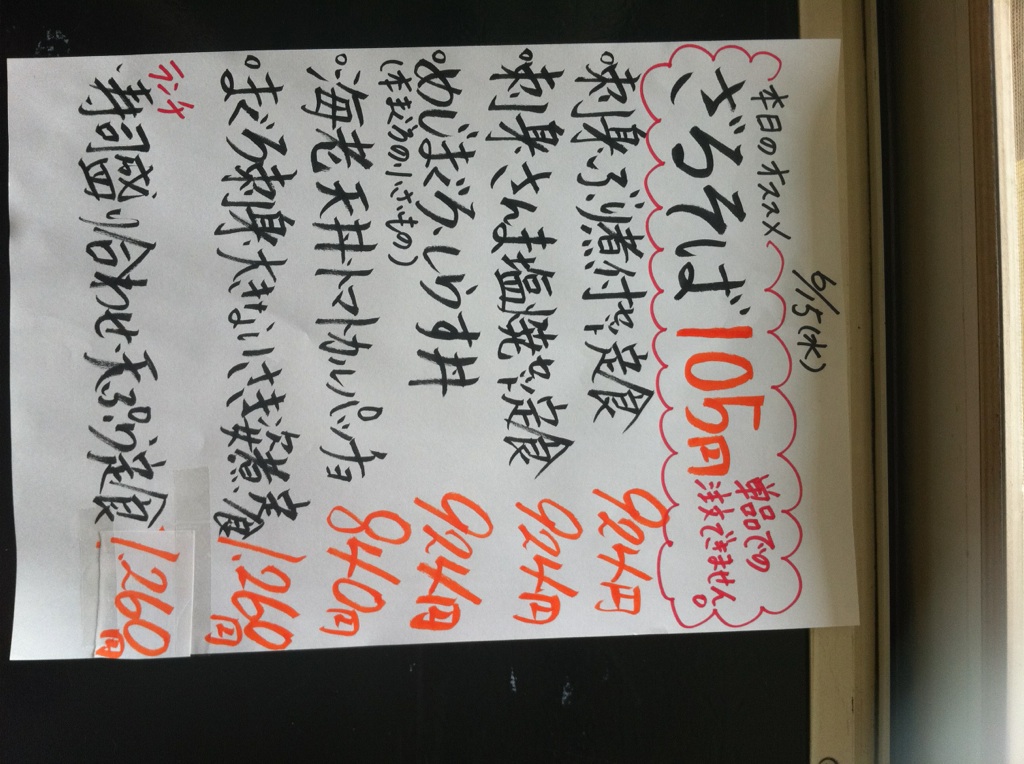 6/15(水)
本日のオススメ
ざるそば 105円
単品での
注文できません。
・刺身・ぶり煮付け定食 924円
・刺身・さんま塩焼き定食 924円
・めじまぐろ・しらす丼 924円
(本まぐろの小さいもの)
・海老天丼・トマトカルパッチョ 840円
・まぐろ刺身・大きないさき姿煮定食 1.260円
ランチ
・寿司盛り合わせ・天ぷら定食 1.260円